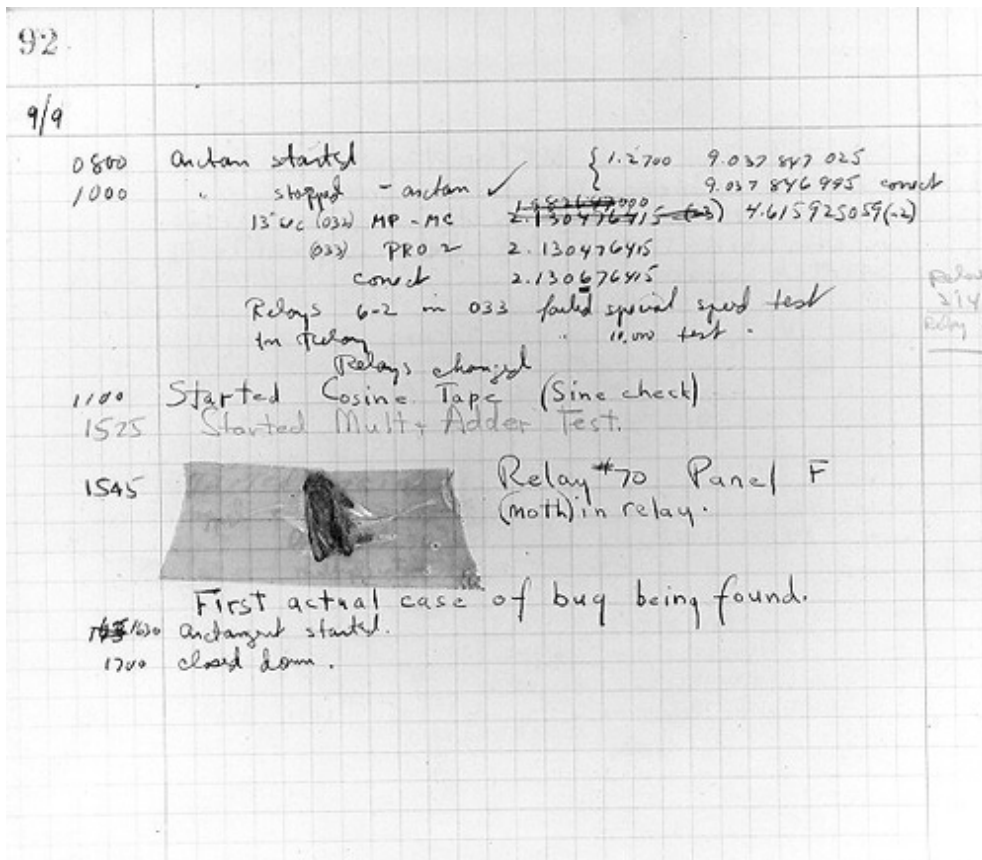 92
9/9
0800 antan started { 1.2700 9.037 847 025
1000 " stopped - antan ✓ 9.037 846 995 correct
13" uc (032) MP - MC 2.130476415 (-3) 4.615925059(-2)
(033) PRO 2 2.130476415
correct 2.130676415
Relays 6-2 in 033 failed special speed test
in Relay " 10,000 test .
Relays changed
1100 Started Cosine Tape (Sine check)
1525 Started Mult + Adder Test.
1545 Relay #70 Panel F
(moth) in relay.
First actual case of bug being found.
1630 antangent started.
1700 closed down.
Relay
Relay